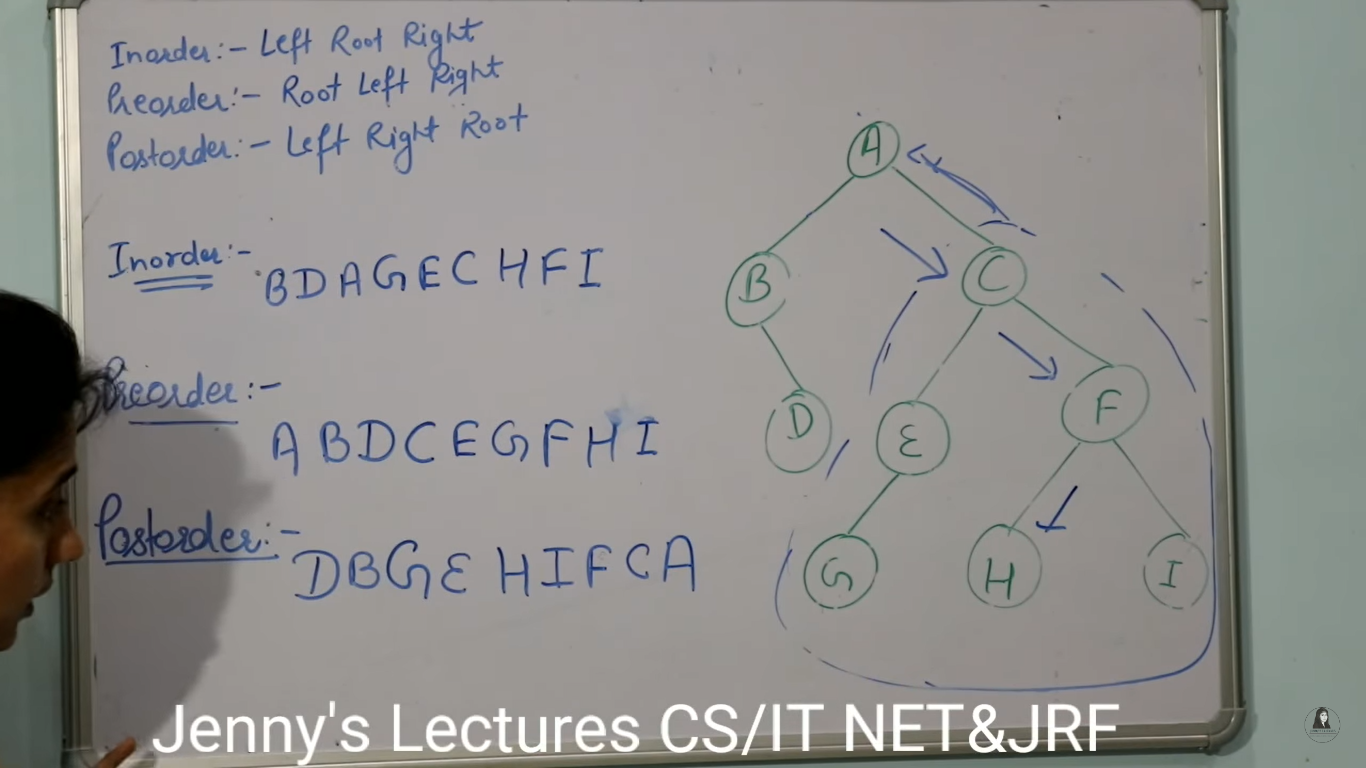 Inorder:- Left Root Right
Preorder:- Root Left Right
Postorder:- Left Right Root
Inorder:-
BDAGECHFI
Preorder:-
ABDCEGFHI
Postorder:-
DBGEHIFCA
A
B
C
D
E
F
G
H
I
Jenny's Lectures CS/IT NET&JRF